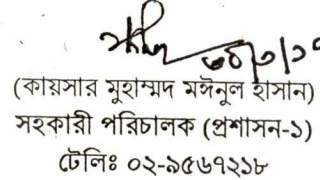 (কায়সার মুহাম্মদ মঈনুল হাসান)
সহকারী পরিচালক (প্রশাসন-১)
টেলিঃ ০২-৯৫৬৭২১৮